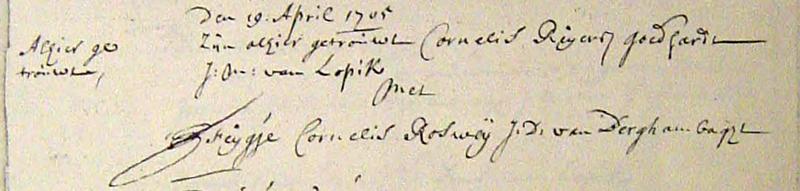 Den 19. April 1705
Alhier ge
trouwt,
Zijn alhier getrouwt Cornelis Reijers goedhardt
J: m: van Lopik
met
Feijgje Cornelis Rosweij J. D. van Berghambagt